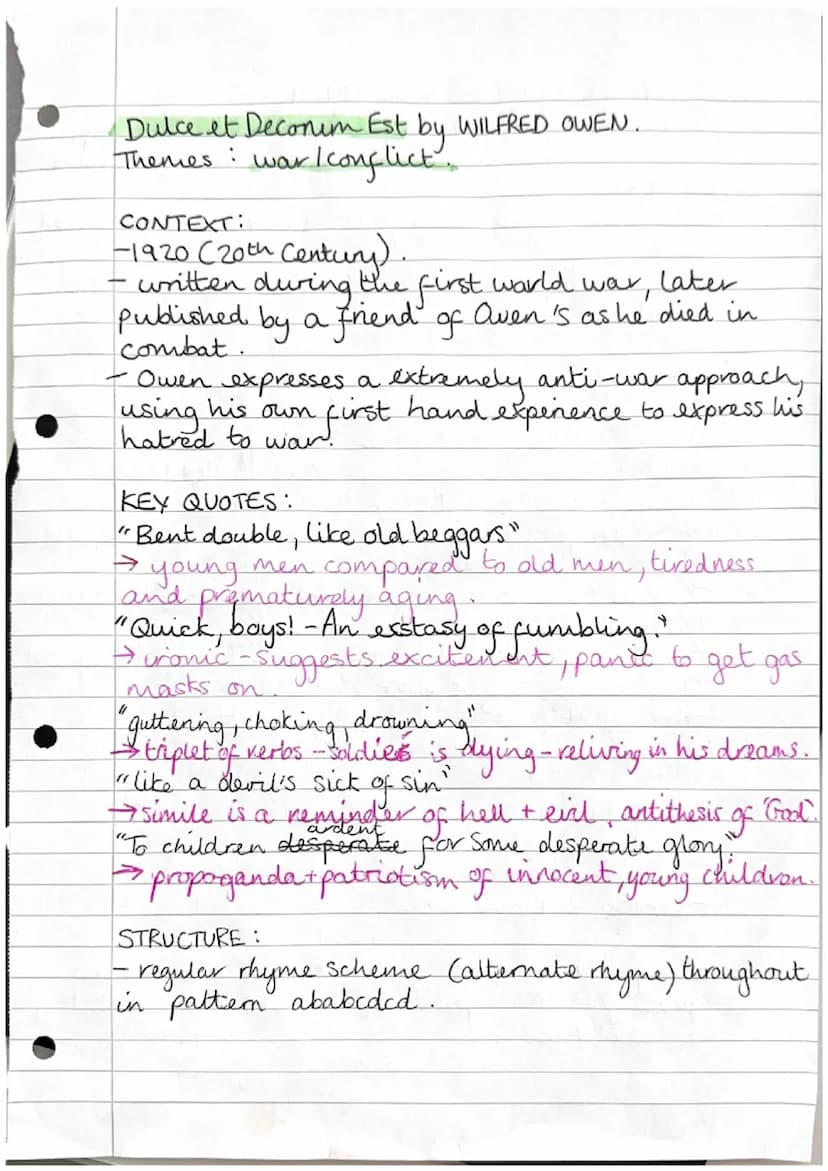 Dulce et Decorum Est by WILFRED OWEN.
Themes : war/conflict.
CONTEXT:
-1920 (20th Century).
- written during the first world war, later
published by a friend of Owen's as he died in
combat.
- Owen expresses a extremely anti-war approach,
using his own first hand experience to express his
hatred to war.
KEY QUOTES:
"Bent double, like old beggars"
→ young men compared to old men, tiredness
and prematurely aging.
"Quick, boys! - An esstasy of fumbling."
→ ironic - suggests excitement, panic to get gas
masks on.
"guttering, choking, drowning"
→ triplet of verbs - soldies is dying - reliving in his dreams.
"like a devil's sick of sin"
→ simile is a reminder of hell + evil, antithesis of 'God'.
"To children desperate ardent for some desperate glory".
→ propoganda + patriotism of innocent, young children.
STRUCTURE:
- regular rhyme scheme (alternate rhyme) throughout
in pattern ababcdcd.